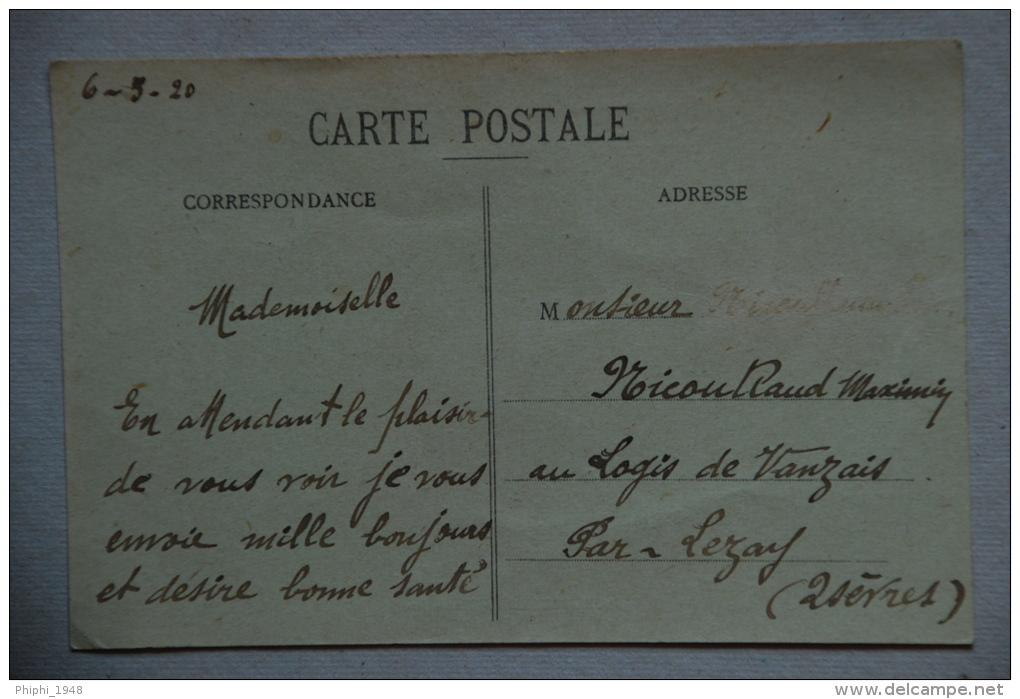 6-5-20
CARTE POSTALE
CORRESPONDANCE
Mademoiselle
En attendant le plaisir
de vous voir je vous
envoie mille bonjours
et désire bonne santé
ADRESSE
Monsieur
Nicoullaud Maximin
au Logis de Vanzais
Par - Lezay
(2 sèvres)
Phiphi_1948
www.delcampe.net